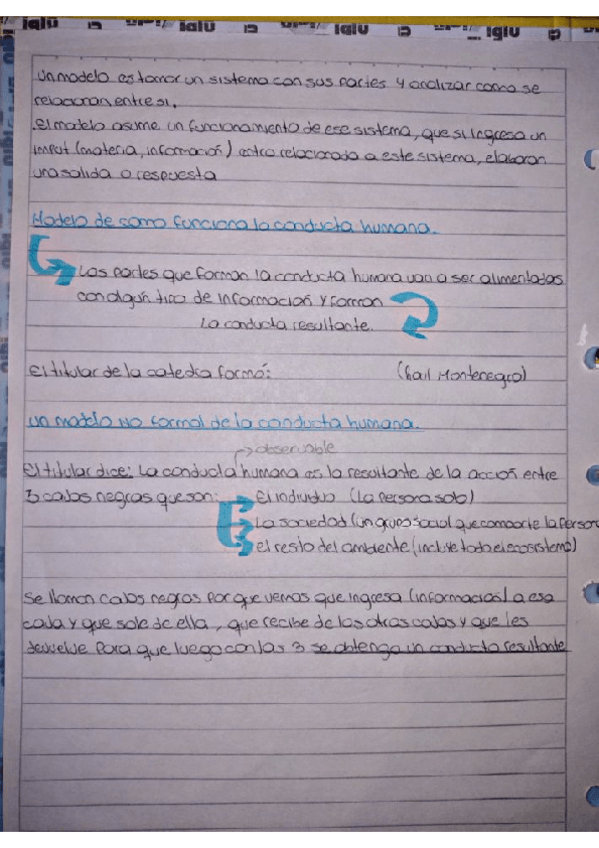 un modelo es tomar un sistema con sus partes y analizar como se
relacionan entre si.
.El modelo asume un funcionamiento de ese sistema, que si ingresa un
imput (materia, información) entra relacionada a este sistema, elaboran
una salida o respuesta
Modelo de como funciona la conducta humana.
Las partes que forman la conducta humana van a ser alimentadas
con algún tipo de información y forman
la conducta resultante.
El titular de la catedra formó: (Rail Montenegro)
un modelo No formal de la conducta humana.
observable
El titular dice: La conducta humana es la resultante de la acción entre
3 cajas negras que son: El individuo (La persona sola)
La sociedad (un grupo social que comparte la person
el resto del ambiente (incluye todo el ecosistema)
Se llaman cajas negras porque vemos que ingresa (información) a esa
caja y que sale de ella, que recibe de las otras cajas y que les
devuelve para que luego con las 3 se obtenga un conducta resultante